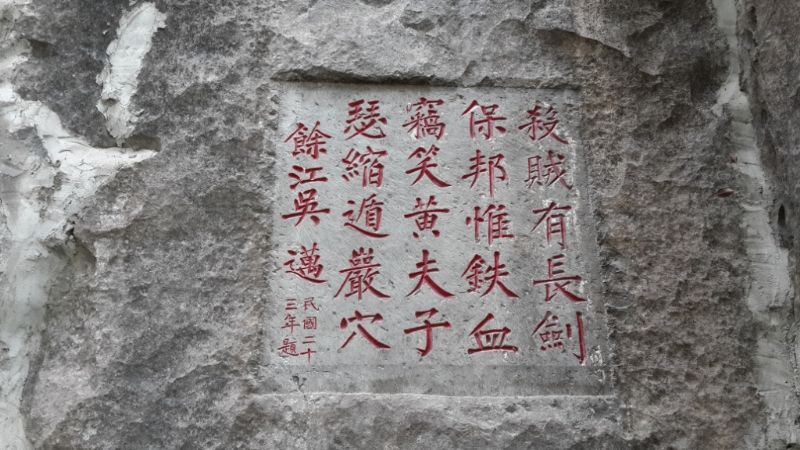 殺賊有長劍
保邦惟鉄血
竊笑黄夫子
瑟縮遁巖穴
餘江吳邁
民國二十
三年題